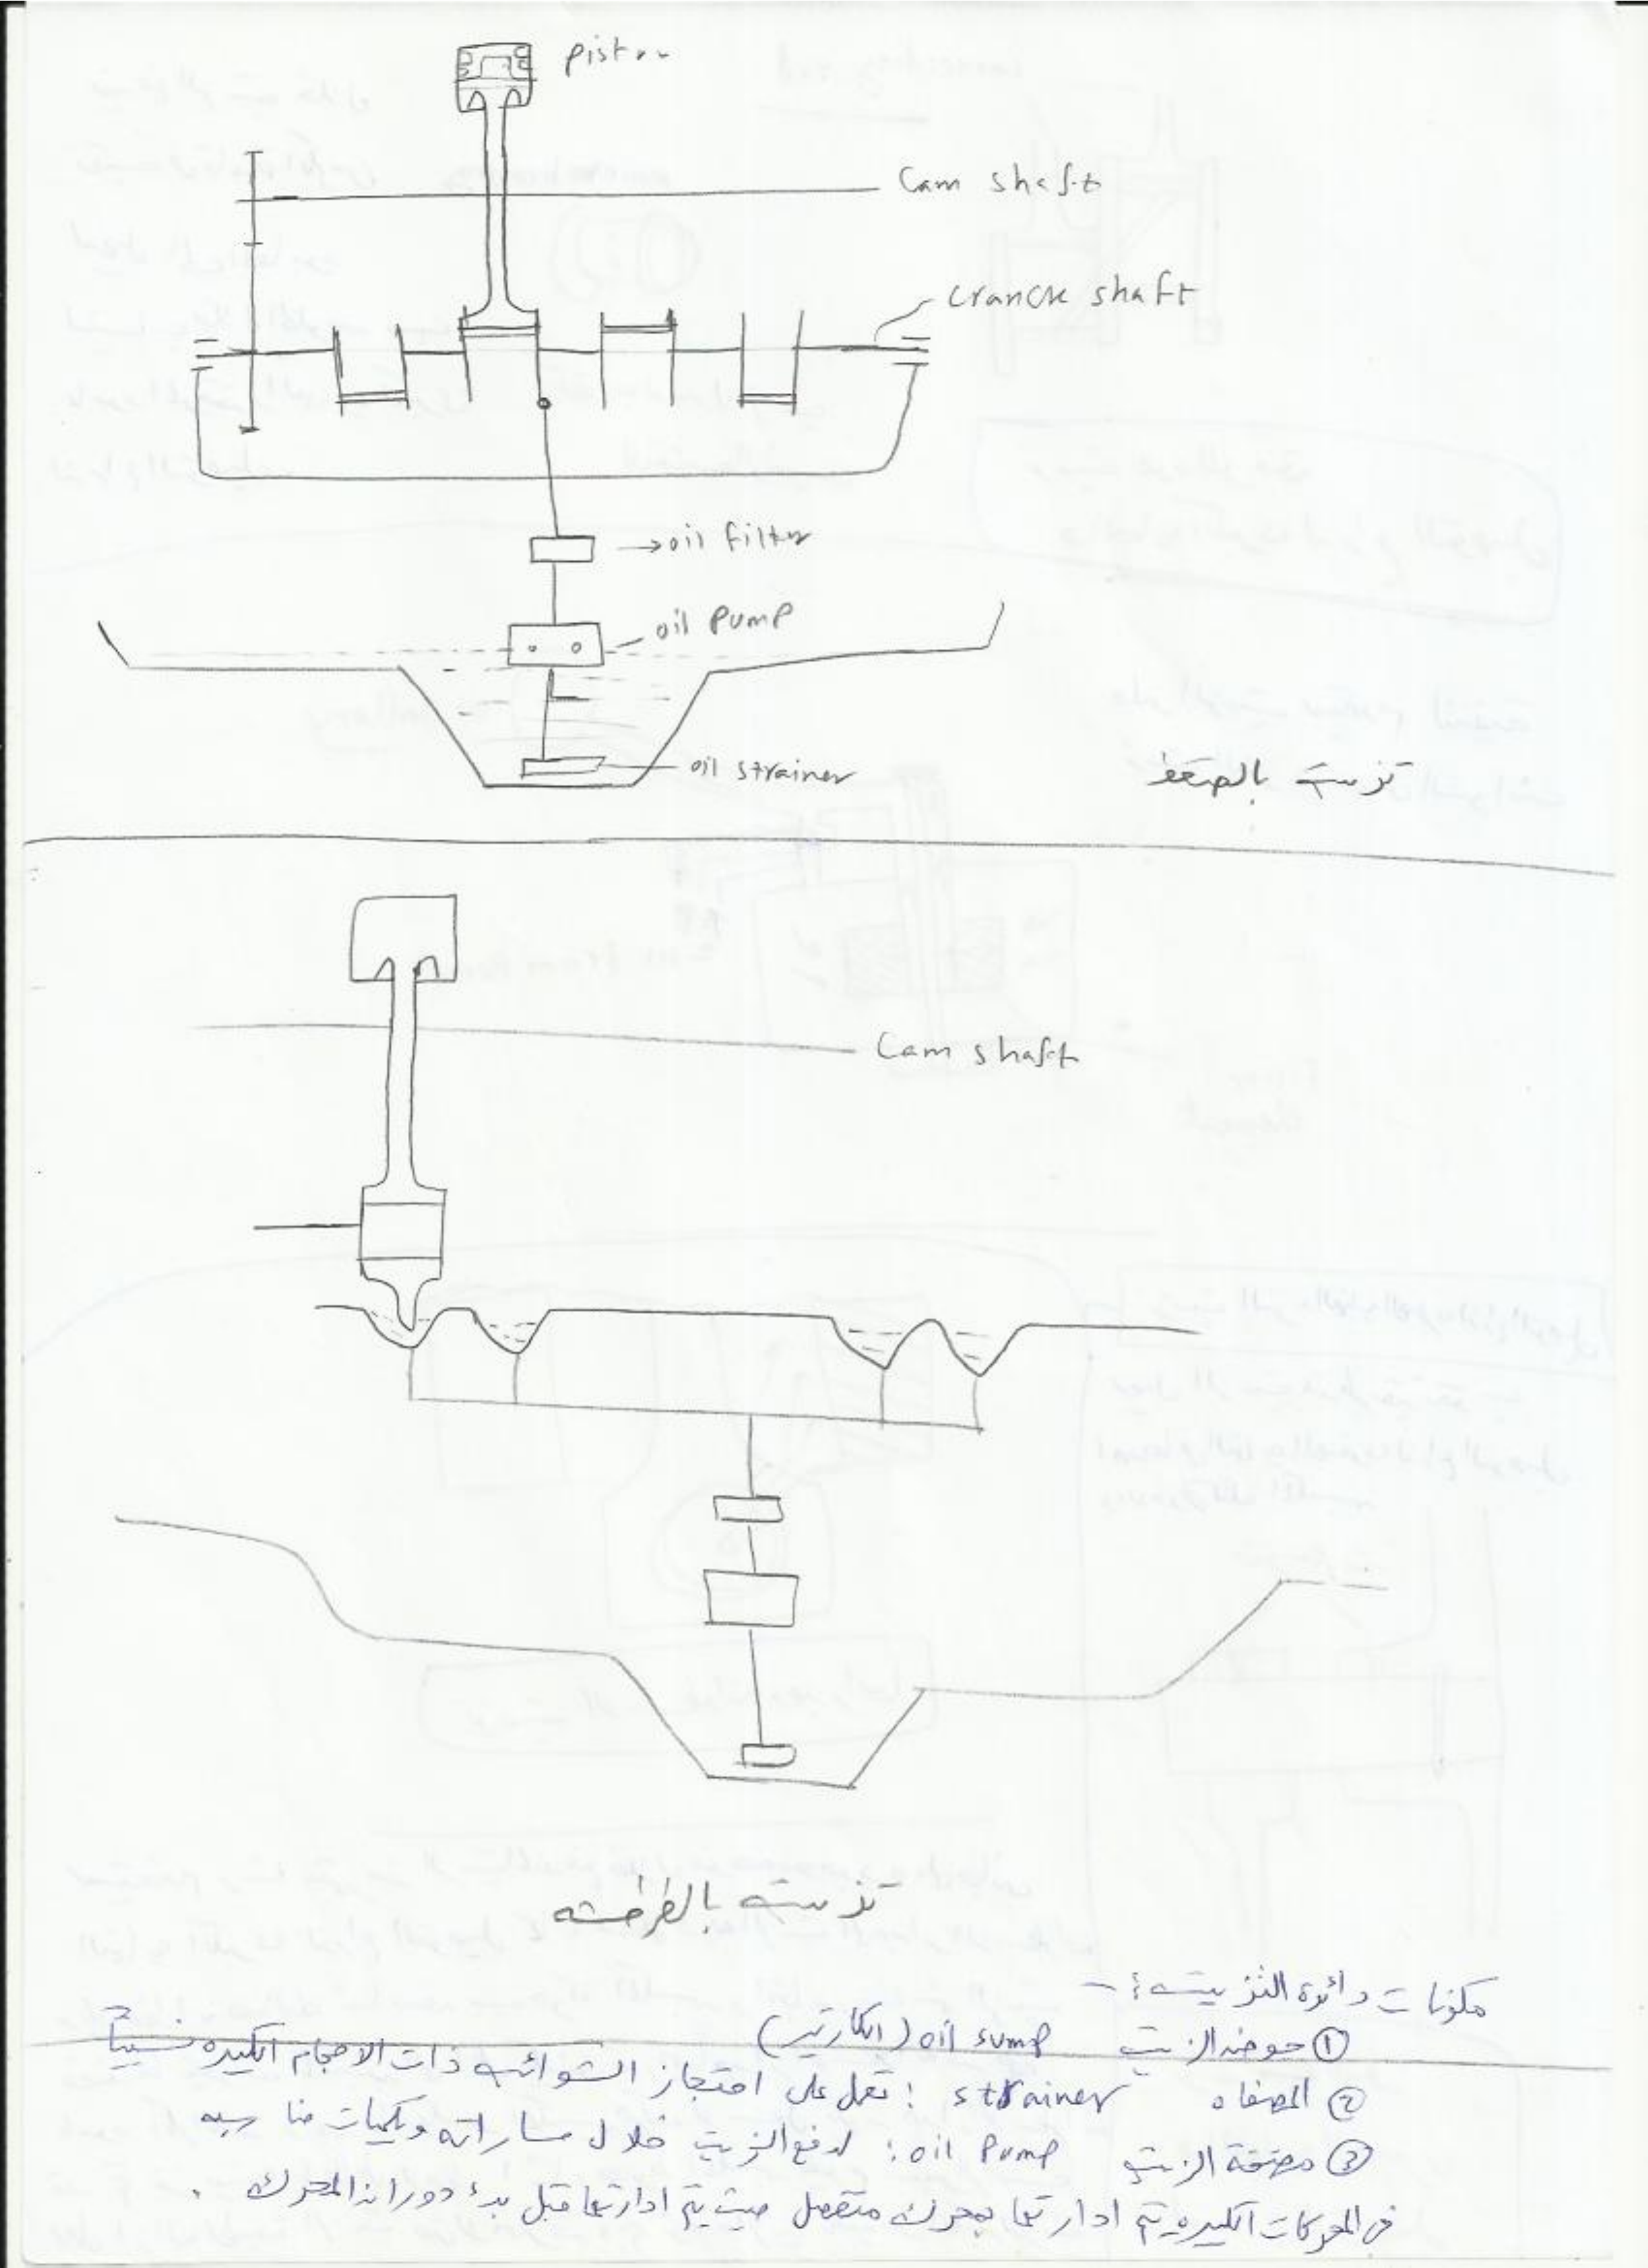 piston
Cam shaft
cranck shaft
oil filter
oil pump
oil strainer
تزييت بالضغط
Cam shaft
تزييت بالطرطشه
مكونات دائرة التزييت :-
① حوض الزيت oil sump (الكارتير)
② المصفاه strainer : تعمل على احتجاز الشوائب ذات الاحجام الكبيره نسبياً
③ مضخة الزيت oil pump : لدفع الزيت خلال مساراته وبكميات مناسبه
فى المحركات الكبيره يتم ادارتها بمحرك منفصل حيث يتم ادارتها قبل بدء دوران المحرك .